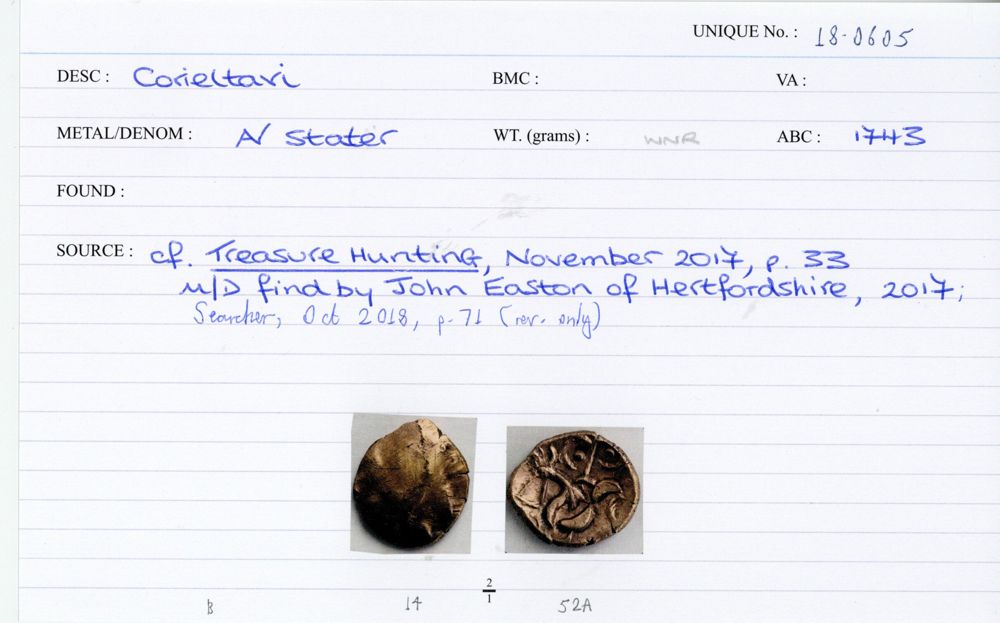 UNIQUE No. : 18-0605
DESC : Corieltavi BMC : VA :
METAL/DENOM : A/ Stater WT. (grams) : WNR ABC : 1743
FOUND :
SOURCE : cf. Treasure Hunting, November 2017, p. 33
M/D find by John Easton of Hertfordshire, 2017;
Searcher, Oct 2018, p.71 (rev. only)
2
1
B 14 52A